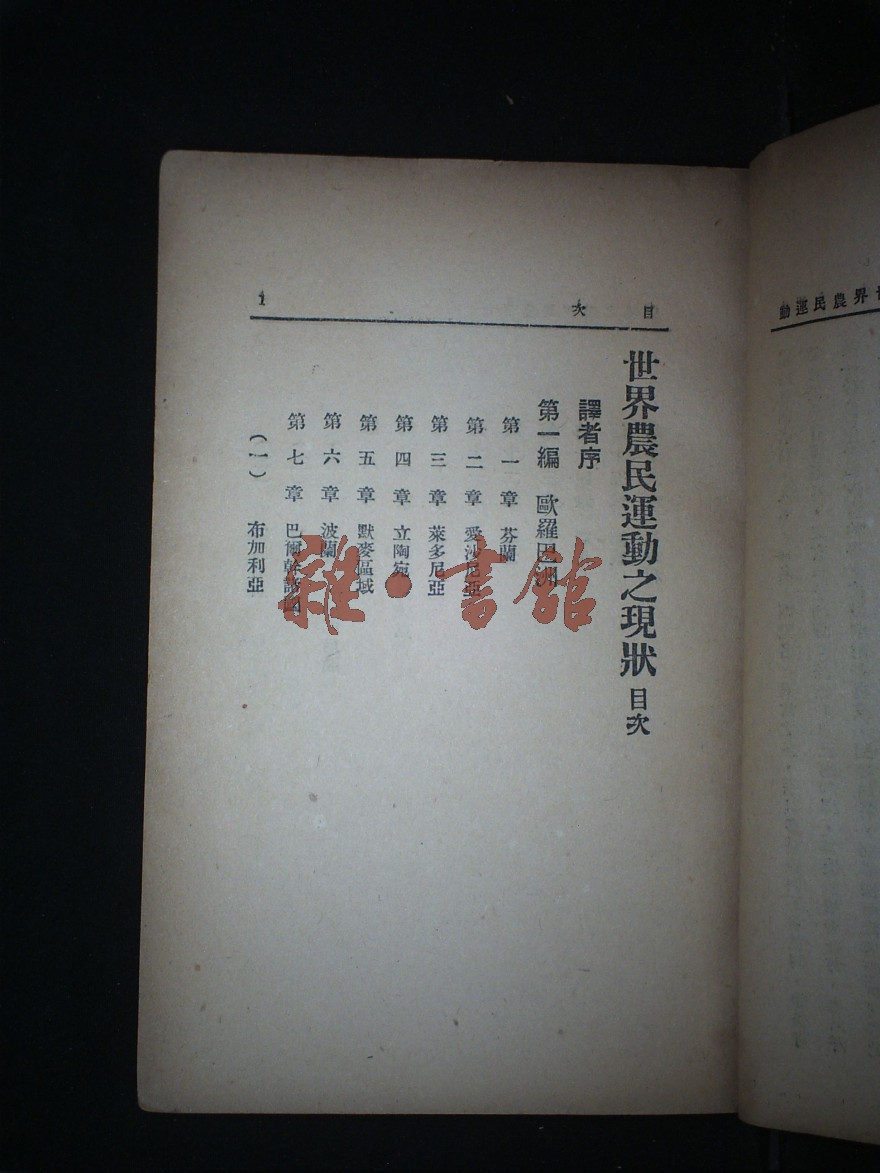 目次
1
世界農民運動之現狀 目次
譯者序
第一編 歐羅巴洲
第一章 芬蘭
第二章 愛沙尼亞
第三章 萊多尼亞
第四章 立陶宛
第五章 默麥區域
第六章 波蘭
第七章 巴爾幹諸國
(一) 布加利亞
界農民運動
雜·書館